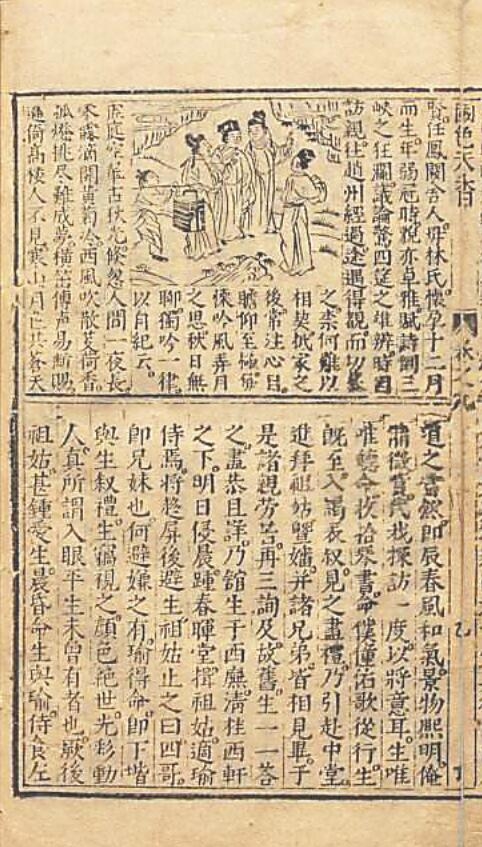 國色天香
卷之九
賢任鳳闕舍人母林氏懷孕十二月
而生年弱冠時貌亦卓雅賦詩倒三
峽之狂瀾議論驚四筵之雄辨時因
訪親往趙州經過途遇得覩而切慕
之柰何難以
相契抵家之
後常注心目
瞻仰至極每
徠吟風弄月
之思秋日無
聊獨吟一律
以自紀云
庭空華古秋光倏忽人間一夜長
寒露滴開黃菊冷西風吹散芰荷香
孤燈挑盡難成夢橫笛傳聲易斷腸
倚高樓人不見寒山月色共蒼天
道之當然即辰春風和氣景物熙明俺
微寶氏找探訪一度以將意耳生唯
唯聽命收拾琴書命僕僮佑歌從行生
既至入謁表叔見之盡禮乃引赴中堂
進拜祖姑暨嬸并諸兄弟皆相見畢于
是諸親勞苦再三詢及故舊生一一答
之盡恭且詳乃館生于西廡清桂西軒
之下明日侵晨踵春暉堂揖祖姑適瑜
侍焉將趍屏後避生祖姑止之曰四哥
即兄妹也何避嫌之有瑜得命即下堦
與生叙禮生竊視之顏色絕世光彩動
人真所謂入眼平生未曾有者也厥後
祖姑甚鍾愛生晨昏命生與瑜侍食左